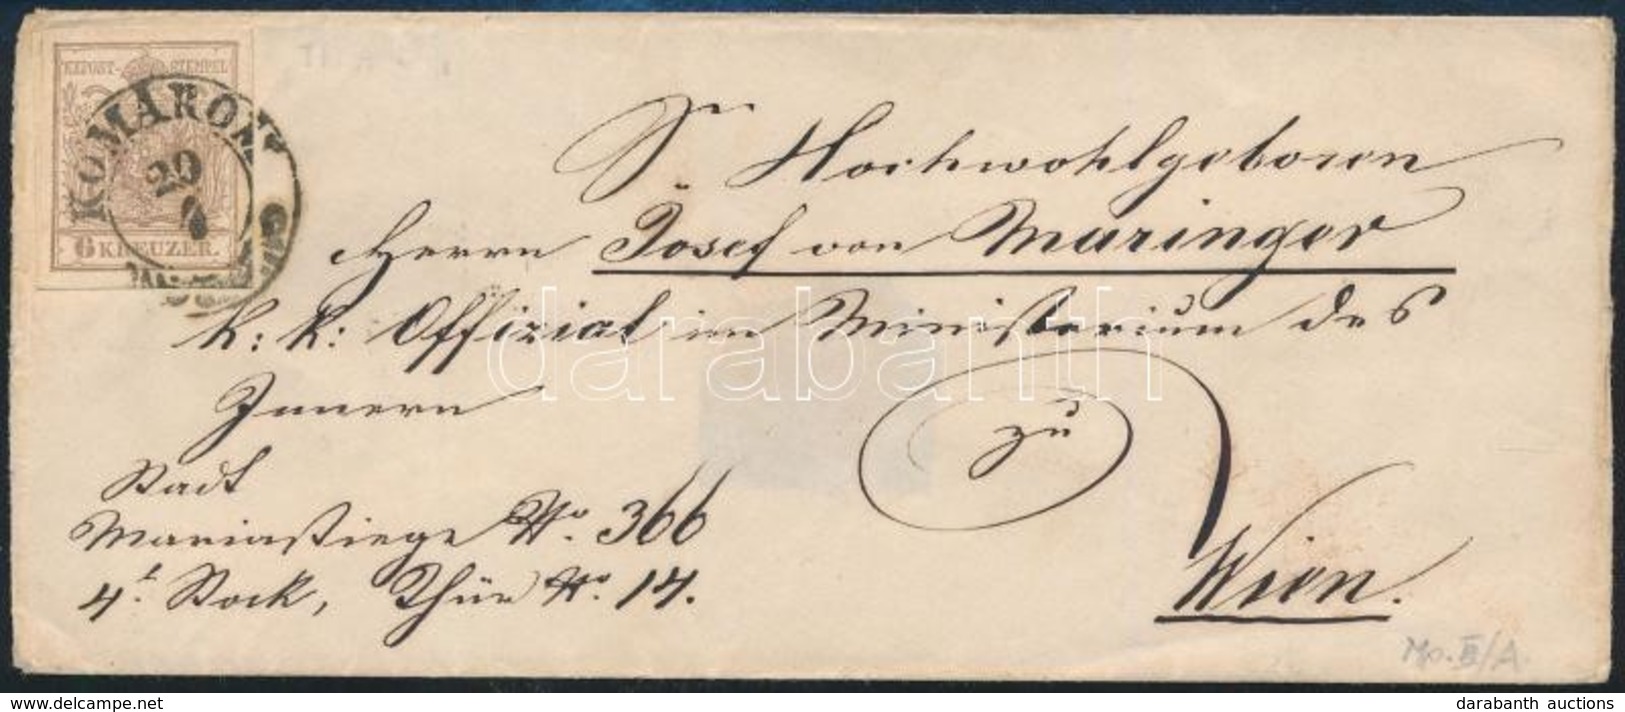 KK.POST-STEMPEL
KOMÁROM
20
6 KREUZER.
Sr Hochwohlgeboren
Herrn Josef von Maringer
k: k: Offizial im Ministerium des
Innern
zu
Stadt
Mariastiege No. 366
4t. Stock, Thür No. 14.
Wien.
Mp. III/A
darabanth
darabanth auctions